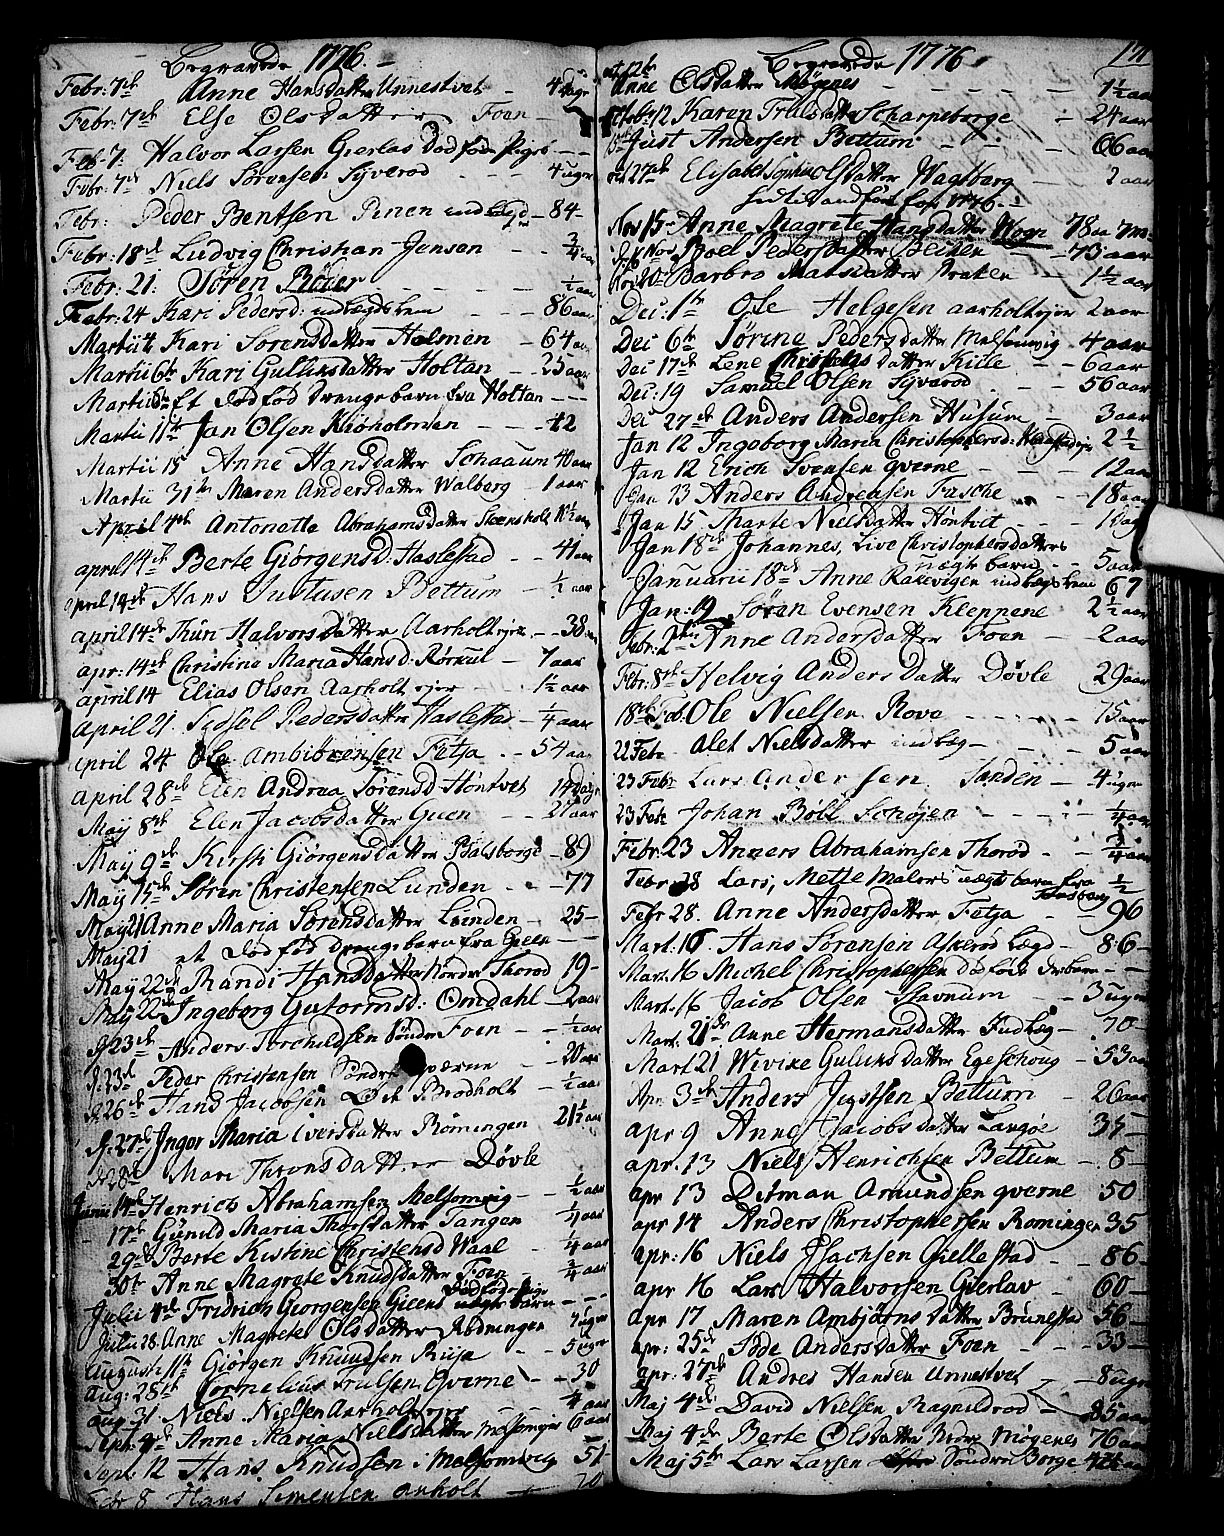 Begravede 1776.
Febr: 7de Anne Hansdatter Unnestvet - 4 dage
Febr: 7de Else Olsdatter Foen -
Febr: 7. Halvor Larsen Gierløs dødfødt Pige -
Febr: 7de Niels Sørensen Syverød - 4 uger
Febr: Peder Bentsen Pinen indlagd - 84 -
Febr: 18de Ludvig Christian Jensen - 3/4 aar
Febr: 21. Søren Røer - 1/2 aar
Febr: 24 Kari Pedersd: indlægdslem - 86 aar
Martii 4 Kari Sørensdatter Holmen - 64 aar
Martii 6te Kari Gulliksdatter Holtan - 25 aar
Martii Et dødfød drengebarn fra Holtan - - -
Martii 11te Jan Olsen Kiøholmen - - 42
Martii 15 Anne Hansdatter Schaaum 40 aar
Martii 31te Maren Andersdatter Walberg - 1 aar
April 4de Antonetta Abrahamsdatter Steensholt 10 1/2 aar
april 14de Berte Giörgensd: Haslestad - 41 aar
april 14de Hans Justusen Bettum - 1/2 aar
april 14de Thuri Halvorsdatter Aarholt ejer - 38 aar
apr: 14de Christine Maria Hansd: Rørkul - 7 aar
april 14 Elias Olsen Aarholt ejer - 1 1/2 aar
April 21. Sidsel Pedersdatter Haslestad - 1/4 aar
april 24 Ole Ambiörensen Fetja - 54 aar
april 28de Elen Andrea Sørensd Höntvet 14 dage
Maÿ 8de Elen Jacobsdatter Gueen - 27 aar
Maÿ 9de Kirsti Giörgensdatter Balsberge - 89
Maÿ 15de Søren Christensen Lunden - 77
Maÿ 21 Anne Maria Sørensdatter Lunden - 25 -
Maÿ 21 et dødfød drengebarn fra Gieen - -
Maÿ 22de Randi Hansdatter Nordre Thorød 19 -
Maÿ 22de Ingeborg Gutormsd: Omdahl - 2 aar
d. 23de Anders Torchildsen Søndre Foen - 1/2 aar
d. 23d Peder Christensen Søndre gværne - 20 aar
d. 26de Hans Jacobsen Brodholt - 1/2 aar
d. 27de Inger Maria Iversdatter Römingen 21 1/2 aar
d. 28de Mari Thronsdatter Døvle
Junii 14de Henrich Abrahamsen Melsomvig - 1/2 aar
17de Gunild Maria Thorsdatter Tangen 1/4 aar
29de Berte Kistine Christensd Waal - 1/4 aar
30te Anne Magrete Knudsdatter Foen - 3/4 aar
Julii 4de Fridrich Georgensen Gieens
Julii 28. Anne Magrete Olsdatter Rødningen 7 uger
Augusti 11te Giörgen Knudsen Riise - 5 uger
Aug: 28de Cornelius Trulsen Gverne - 30
aug 31 Niels Nielsen Aarholt ejer 4 aar
Sept: 4de Anne Maria Nielsdatter Melsomvig 6 aar
Sept. 12 Hans Knudsen i Melsomvig 51 -
Febr 8 Hans Simensen anholt - 70
Begravede 1776
Anne Olsdatter Møgenes - 1 1/2 aar
octobr: 12 Karen Trulsdatter Scharpeborge - 24 aar
Just Andersen Bettum - 66 aar
oct 27de Elisabet Sophia Olsdatter Wagberg - 2 aar
Nov 15 Anne Magrete Hansdatter Wogn 78 aar 7 mo
Nov. Boel Pedersdatter - 73 aar
Nov 20 Barbro Matsdatter Braken 1 1/2 aar
Dec: 1te Ole Helgesen aarholt ejer 2 aar
Dec 6te Sørine Pedersdatter Melsomvig - 4 aar
Dec 17de Lene datter Kille - 6 aar
Dec: 19 Samuel Olsen Syverød - 56 aar
Dec 27de Anders Andersen Husum - 3 aar
Jan 12 Ingeborg Maria Christophersd: 2 1/2
Jan 12 Erich Svensen gverne - 12 aar
Jan 13 Anders Andreasen Fasche - 18 aar
Jan 15 Marte Nielsdatter Höntvet - 1 dag
Jan 18de Johannes, Live Christophersdatters
uægte barn - 5 aar
Januarii 18de Anne Rakevigen indlægslem 67
Jan: 19 Søren Evensen Kleppene 2 1/2 aar
Febr: 2den Anne Andersdatter Foen - 2 aar
Febr: 8de Helvig Andersdatter Døvle 29 aar
18de Feb. Ole Nielsen Rove - 75 aar
22 Febr Alet Nielsdatter indlæg - 5 aar
23 Febr Lars Andersen Sanden - 4 uger
23 Febr Johan Böll Schøjen - 1/4 aar
Febr: 23 Anners Abrahamsen Thorød - 3/4 aar
Febr 28 Lars, Mette Malers uægte barn fra 1/2
Febr 28. Anne Andersdatter Fetja - 96
Mart. 16 Hans Sørensen Askerød Lægd - 86 -
Mart. 16 Michel Christophersen dødføde barn - -
Mart. 16 Jacob Olsen Stavnum - 3 uger
Mart. 21de Anne Hermansdatter Indlæg - 70 -
Mart 21 Wivike Guliksdatter Egeschoug - 53 aar
Apr. 3de Anders Justsen Bettum - 26 aar
apr 9 Anne Jacobsdatter Langøe 35 -
apr. 13 Niels Henrichsen Bettum - 8 -
apr 13 Ditman Amundsen gverne 50
apr 14 Anders Christophersen Romingen 35
apr: 16 Niels Isachsen Giellestad - 86 -
apr 16 Lars Halvorsen Gierløv - 60 -
apr 17 Maren Ambjörnsdatter Brunestad 56 -
apr: 25de Ide Andersdatter Foen - 33 -
apr: 27de Andres Hansen Unnestvet - 8 uger
Maj 4de David Nielsen Ragnildrød - 85 aar
Maj 4de Berte Olsdatter Nordre Møgenes 76 aar
Maj 5te Lars Larsen Søndre Borge